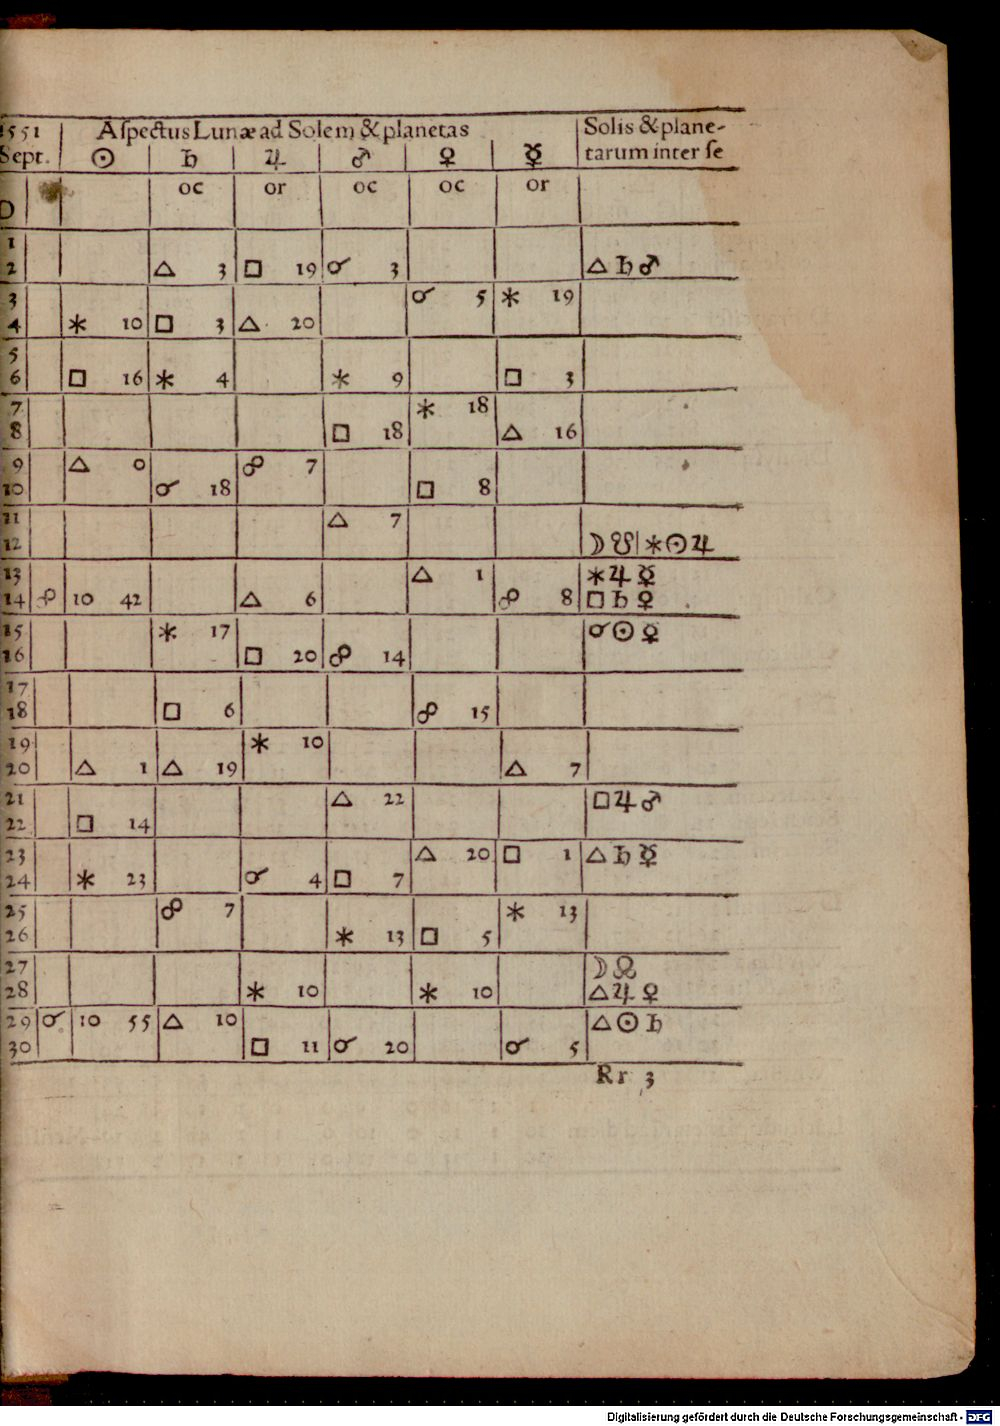 1551 Aſpectus Lunæ ad Solem & planetas Solis & plane-
Sept. ☉ ♄ ♃ ♂ ♀ ☿ tarum inter ſe
oc or oc oc or
1
2 △ 3 □ 19 ☌ 3 △ ♄ ♂
3 ☌ 5 ⚹ 19
4 ⚹ 10 □ 3 △ 20
5
6 □ 16 ⚹ 4 ⚹ 9 □ 3
7 ⚹ 18
8 □ 18 △ 16
9 △ 0 ☍ 7
10 ☌ 18 □ 8
11 △ 7
12 ☽ ☋ ⚹ ☉ ♃
13 △ 1 ⚹ ♃ ☿
14 ☍ 10 42 △ 6 ☍ 8 □ ♄ ♀
15 ⚹ 17 ☌ ☉ ♀
16 □ 20 ☍ 14
17
18 □ 6 ☍ 15
19 ⚹ 10
20 △ 1 △ 19 △ 7
21 △ 22 □ ♃ ♂
22 □ 14
23 △ 20 □ 1 △ ♄ ☿
24 ⚹ 23 ☌ 4 □ 7
25 ☍ 7 ⚹ 13
26 ⚹ 13 □ 5
27 ☽ ☊
28 ⚹ 10 ⚹ 10 △ ♃ ♀
29 ☌ 10 55 △ 10 △ ☉ ♄
30 □ 11 ☌ 20 ☌ 5
Rr 3
Digitalisierung gefördert durch die Deutsche Forschungsgemeinschaft - DFG